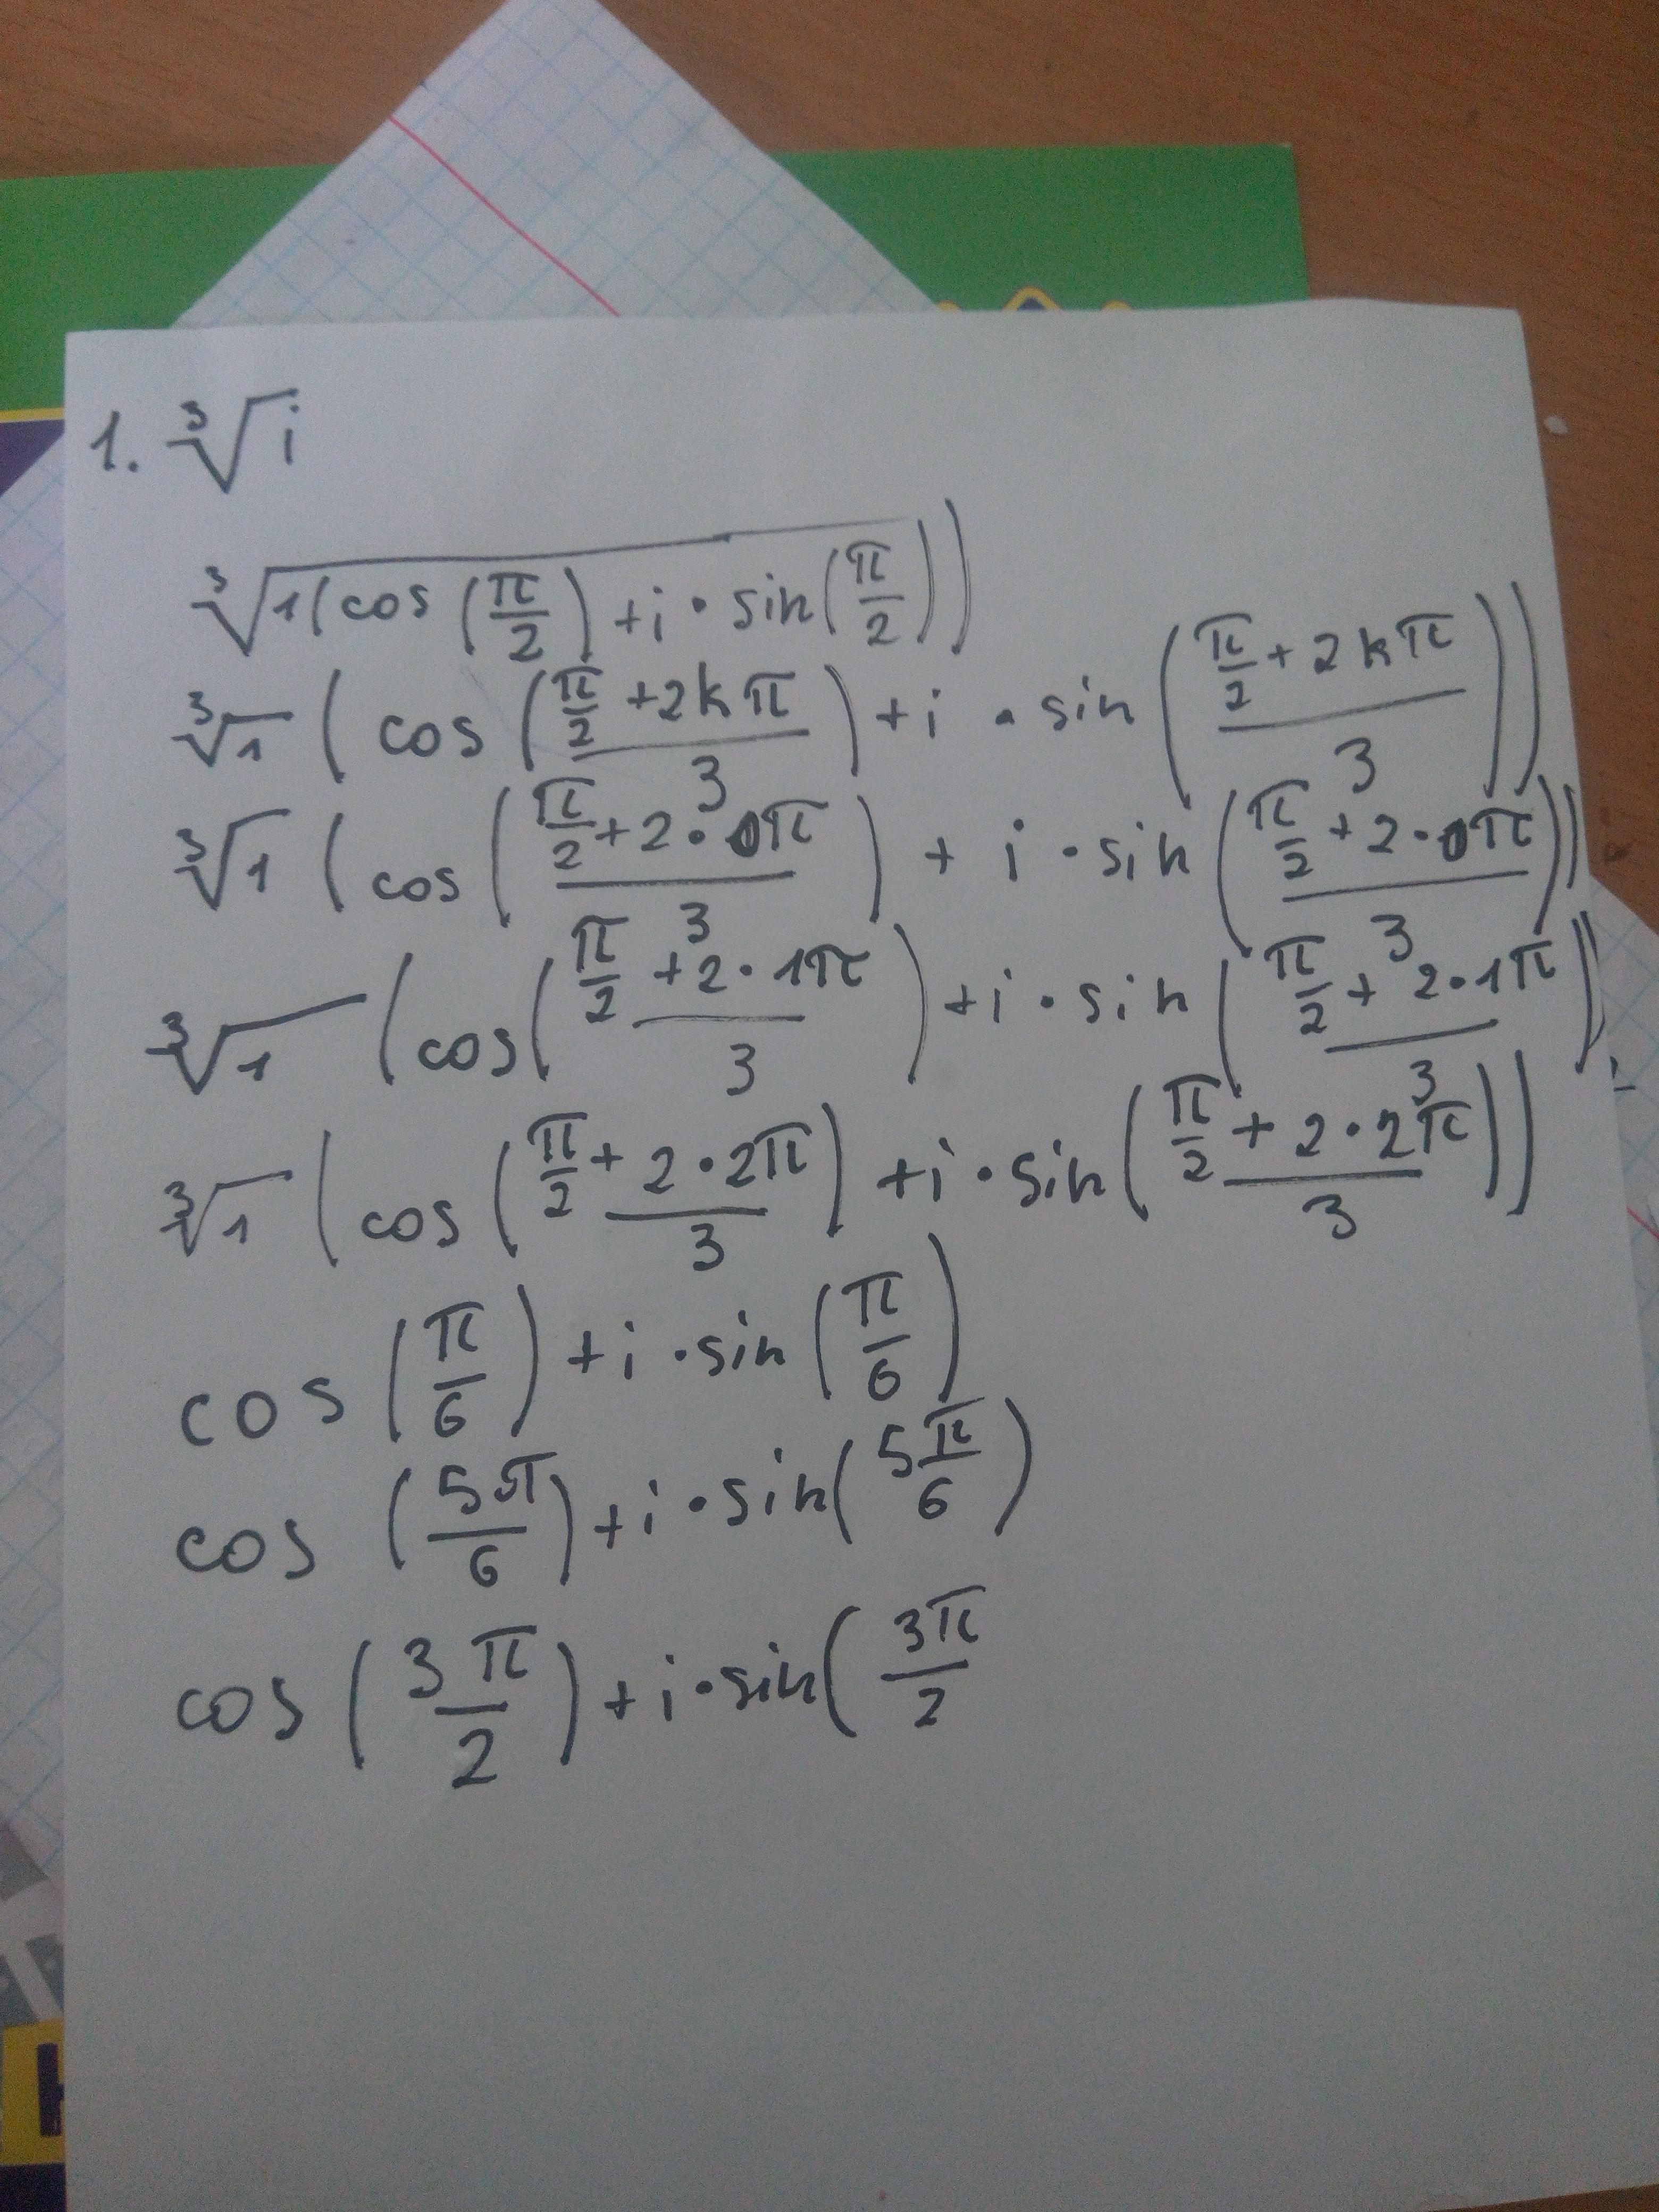 1. ∛i
∛(1(cos(π/2)+i·sin(π/2)))
∛1(cos((π/2+2kπ)/3)+i·sin((π/2+2kπ)/3))
∛1(cos((π/2+2·0π)/3)+i·sin((π/2+2·0π)/3))
∛1(cos((π/2+2·1π)/3)+i·sin((π/2+2·1π)/3))
∛1(cos((π/2+2·2π)/3)+i·sin((π/2+2·2π)/3))
cos(π/6)+i·sin(π/6)
cos(5π/6)+i·sin(5π/6)
cos(3π/2)+i·sin(3π/2